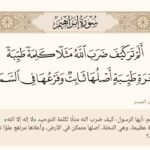 سورة إبراهيم
ألم تر كيف ضرب الله مثلا كلمة طيبة
كشجرة طيبة أصلها ثابت وفرعها في السماء
أيها الرسول، كيف ضرب الله مثلا لكلمة التوحيد «لا إله إلا الله»
عظيمة، وهي النخلة، أصلها متمكن في الأرض، وأعلاها مرتفع علوًا